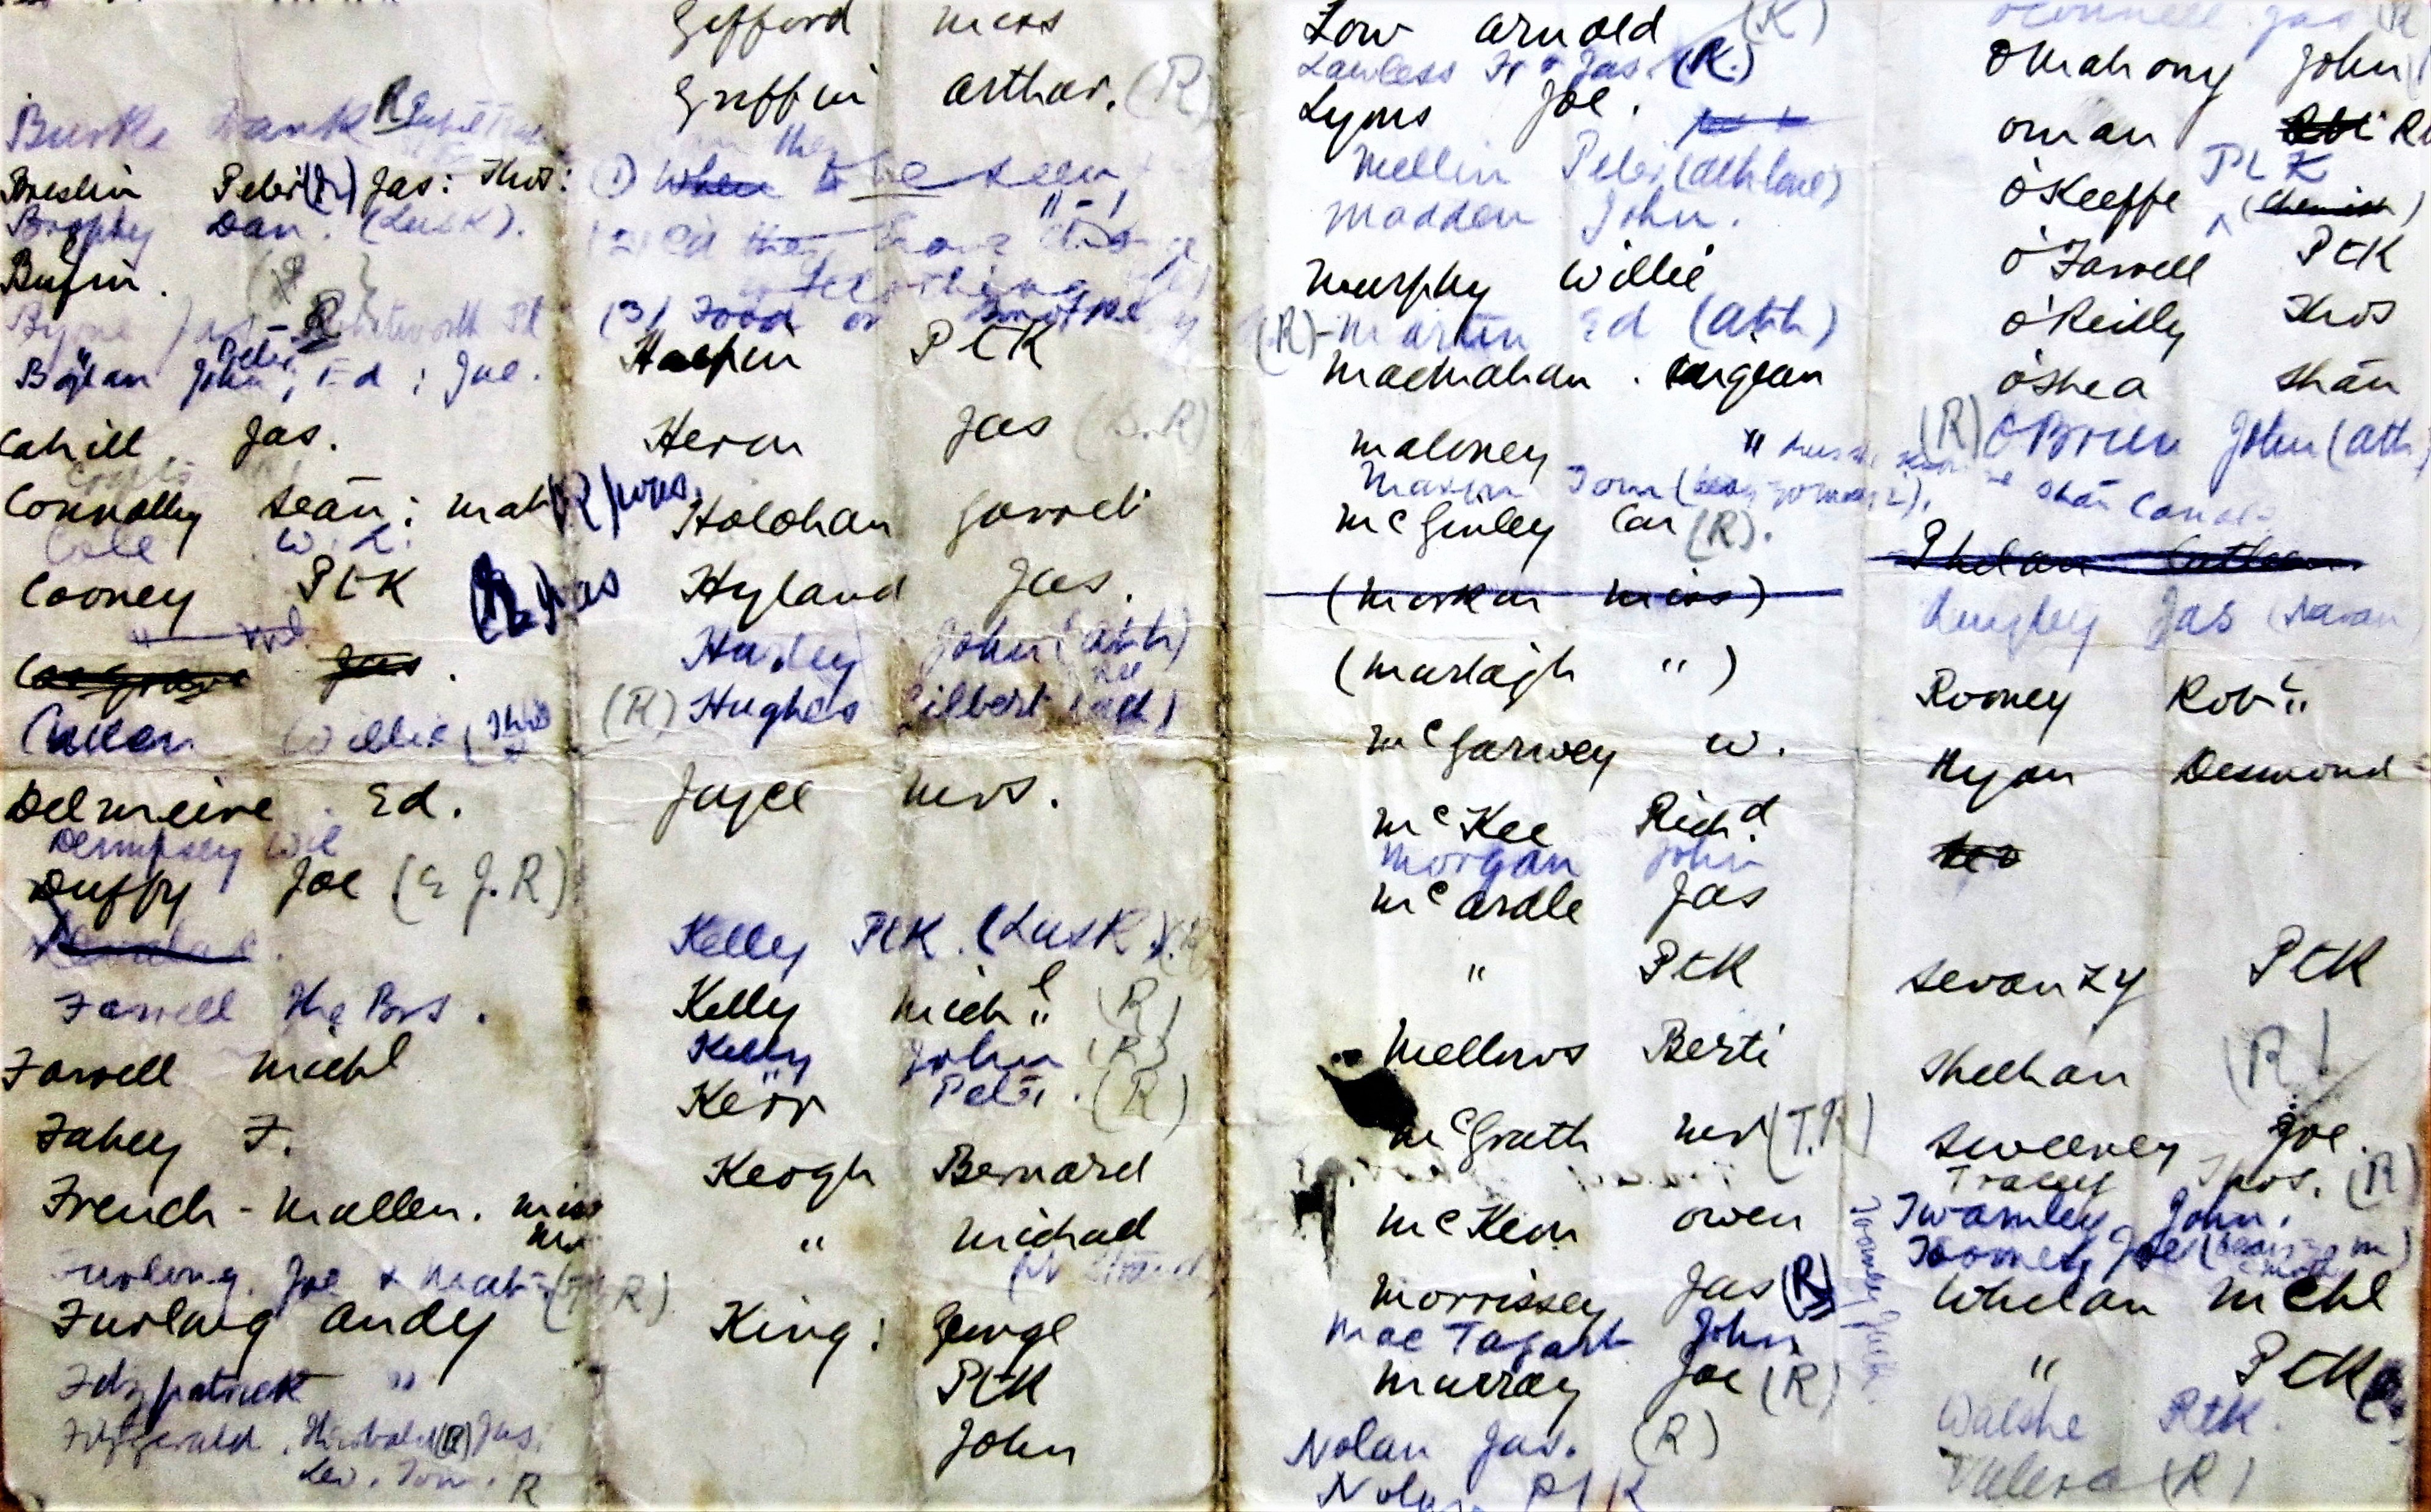 Burke Frank R
Breslin Peter (R) Jas: Thos:
Brophy Dan. (Lusk).
Byrne Jas - R
Boylan John, Peter, Ed; Joe.
Cahill Jas.
Connolly Seán; Mat (R) yes.
Cole W. L.
Cooney PtK (R) yes
Cosgrave Jas.
Cullen Willie (Thos
Delmeire Ed.
Dempsey Wil
Duffy Joe (E J. R)
Farrell The Bros.
Farrell Michl
Fahey F.
French-Mullen. Miss
Furlong. Joe & Matt
Furlong Andy
Fitzpatrick "
Fitzgerald. Theobald (R) Jas.
Leo. Tom. R
Gifford Miss
Griffin Arthur. (R)
(1) When to be seen
(2) Did they have change
of clothing
(3) Food or
Halpin PtK
Heron Jas (S.R)
Holohan Garret
Hyland Jas.
Harley John (Ath)
(R) Hughes Gilbert (Ath)
Joyce Mrs.
Kelly PtK. (Lusk).
Kelly Mich'l (R)
Kelly John (R)
Kerr Peter. (R)
Keogh Bernard
" Michael
King: George
PtK
John
Low Arnold (R)
Lawless Fr & Jas. (R.)
Lyons Joe.
Mellin Peter (Athlone)
Madden John.
Murphy Willie
(R)-Martin Ed (Ath)
MacMahan. Surgeon
Maloney "
Mason Tom
McGinley Con (R).
(Markan Miss)
(Murtagh ")
McGarvey W.
McKee Richd.
Morgan John
McArdle Jas
" PtK
Mellows Berti
McGrath Mr (T.R)
McKeon Owen
Morrissey Jas (R)
MacTagart John
Murray Joe (R)
Nolan Jas. (R)
Nolan PtK
O'Connell Jas (R
O'Mahony John
Oman
O'Keeffe PtK (Chemist)
O'Farrell PtK
O'Reilly Thos
O'Shea Shán
(R) O'Brien John (Ath)
Phelan Cathleen
Quigley Jas (Navan
Rooney Robt
Ryan Desmond
Sevanzy PtK
Sheehan (R)
Sweeney Joe.
Tracey Thos. (R)
Twamley John.
Toomey Joe
Whelan Mchl
" PtK
Walshe PtK.
Valera (R)